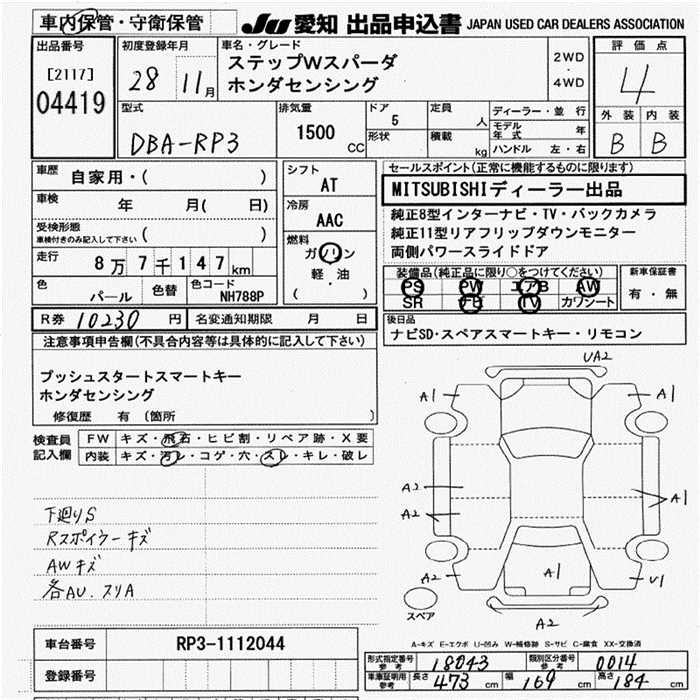 車内保管・守衛保管 JU 愛知 出品申込書 JAPAN USED CAR DEALERS ASSOCIATION
出品番号 [2117] 04419
初度登録年月 28 11月
車名・グレード ステップWスパーダ ホンダセンシング
2WD・4WD
評価点 4
外装 B 内装 B
型式 DBA-RP3
排気量 1500 CC
ドア 5 形状
定員 人 積載 kg
ディーラー・並行
モデル年式 年
ハンドル 左・右
車歴 自家用・( )
車検 年 月( 日)
受検形態 車検付きのみ記入して下さい ( )
走行 8万7千147km
色 パール 色替 色コード NH788P
シフト AT
冷房 AAC
燃料 ガソリン 軽・油 ( )
セールスポイント(正常に機能するものに限ります)
MITSUBISHIディーラー出品
純正8型インターナビ・TV・バックカメラ
純正11型リアフリップダウンモニター
両側パワースライドドア
装備品(純正品に限り○をつけてください)
PS PW エアB AW
SR TV カワシート
新車保証書 有・無
R券 10230円 名変通知期限 月 日
後日品
ナビSD・スペアスマートキー・リモコン
注意事項申告欄(不具合内容等は具体的に記入して下さい)
プッシュスタートスマートキー
ホンダセンシング
修復歴 有 (箇所 )
検査員記入欄
FW キズ・飛石・ヒビ割・リペア跡・X要
内装 キズ・汚レ・コゲ・穴・スレ・キレ・破レ
下廻りS
Rスポイラーキズ
AWキズ
各AU.スリA
UA2
A1 A1
A2
A2
A1
A2 A1 U1
スペア
A2
A-キズ E-エクボ U-凹み W-補修跡 S-サビ C-腐食 XX-交換済
車台番号 RP3-1112044
登録番号
形式指定番号 参考 18043 類別区分番号 参考 0014
車庫証明用 参考 長さ 473 cm 幅 169 cm 高さ 184 cm